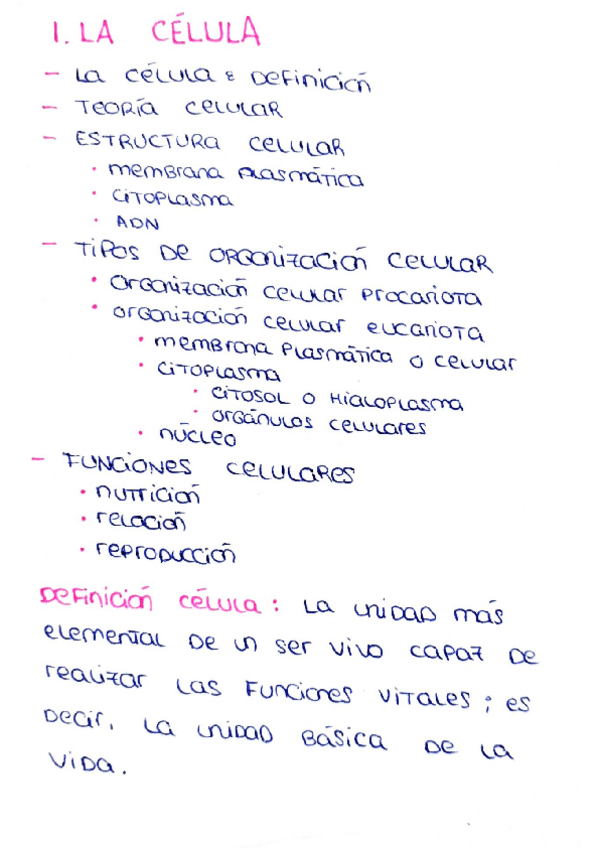 1. LA CÉLULA
- La célula: Definición
- Teoría celular
- Estructura celular
· membrana plasmática
· Citoplasma
· ADN
- Tipos de organización celular
· Organización celular procariota
· organización celular eucariota
· membrana plasmática o celular
· Citoplasma
· Citosol o Hialoplasma
· orgánulos celulares
· núcleo
- Funciones celulares
· nutrición
· relación
· reproducción
Definición célula: La unidad más
elemental de un ser vivo capaz de
realizar las funciones vitales; es
decir, la unidad básica de la
vida.